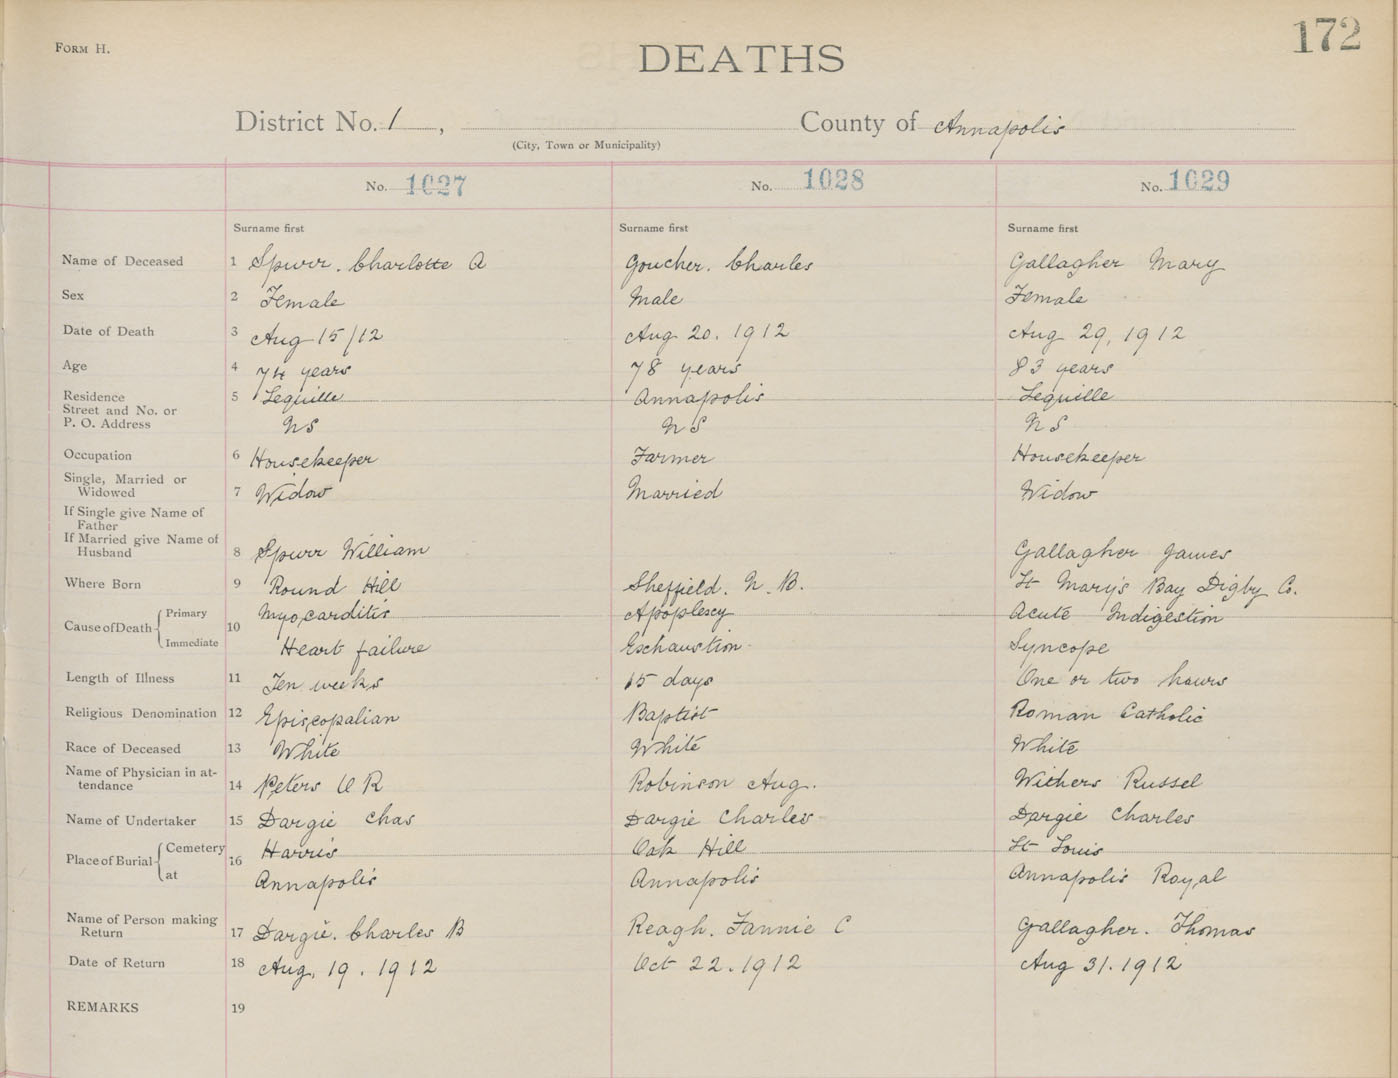 FORM H.
172
DEATHS
District No. 1, County of Annapolis
(City, Town or Municipality)
No. 1027 No. 1028 No. 1029
Surname first Surname first Surname first
Name of Deceased 1 Spurr. Charlotte A Goucher. Charles Gallagher Mary
Sex 2 Female Male Female
Date of Death 3 Aug 15/12 Aug 20. 1912 Aug 29, 1912
Age 4 74 years 78 years 83 years
Residence 5 Lequille Annapolis Lequille
Street and No. or
P. O. Address NS NS NS
Occupation 6 Housekeeper Farmer Housekeeper
Single, Married or
Widowed 7 Widow Married Widow
If Single give Name of
Father
If Married give Name of
Husband 8 Spurr William Gallagher James
Where Born 9 Round Hill Sheffield. N. B. St Mary's Bay Digby Co.
Cause of Death 10 Primary Myocarditis Apoplescy Acute Indigestion
Immediate Heart failure Exhaustion Syncope
Length of Illness 11 Ten weeks 15 days One or two hours
Religious Denomination 12 Episcopalian Baptist Roman Catholic
Race of Deceased 13 White White White
Name of Physician in at-
tendance 14 Peters O R Robinson Aug. Withers Russel
Name of Undertaker 15 Dargie Chas Dargie Charles Dargie Charles
Place of Burial 16 Cemetery Harris Oak Hill St Louis
at Annapolis Annapolis Annapolis Royal
Name of Person making
Return 17 Dargie. Charles B Reagh. Fannie C Gallagher. Thomas
Date of Return 18 Aug. 19. 1912 Oct 22. 1912 Aug 31. 1912
REMARKS 19